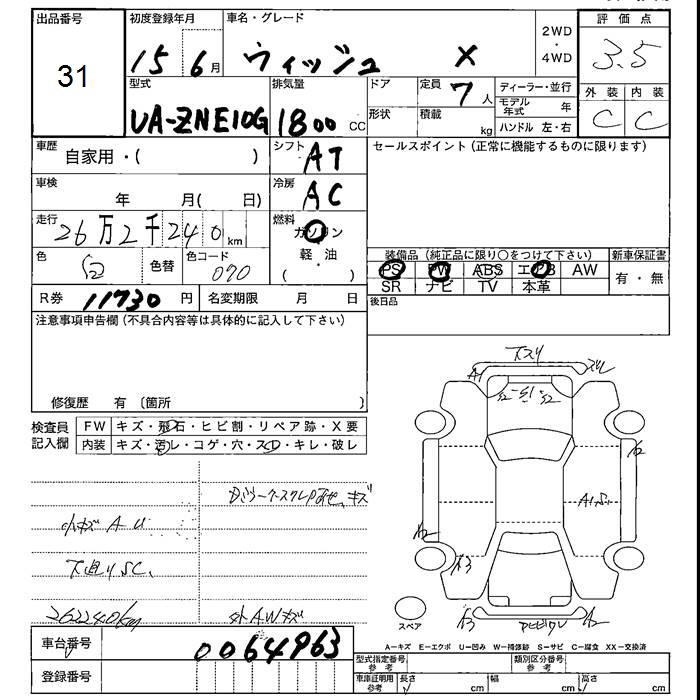 出品番号
31
初度登録年月
15年6月
車名・グレード
ウィッシュ X
2WD
・
4WD
評価点
3.5
外装 内装
C C
型式
UA-ZNE10G
排気量
1800 CC
ドア
形状
定員
7人
積載
kg
ディーラー・並行
モデル年式 年
ハンドル 左・右
車歴
自家用・( )
シフト
AT
車検
年 月( 日)
冷房
AC
走行
26万2千240km
燃料
ガソリン
軽・油
( )
色
白
色替
色コード
070
R券 11730円
名変期限 月 日
セールスポイント(正常に機能するものに限ります)
装備品(純正品に限り○をつけて下さい)
新車保証書
PS PW ABS エアB AW
SR ナビ TV 本革
有・無
後日品
注意事項申告欄(不具合内容等は具体的に記入して下さい)
修復歴 有 〔箇所 〕
検査員記入欄
FW キズ・飛石・ヒビ割・リペア跡・X要
内装 キズ・汚レ・コゲ・穴・スレ・キレ・破レ
小キズ A U
下廻りSC、
262240km
外AWキズ
下スリ
A1
S2
S1
S2
A1 S1
スペア
A−キズ E−エクボ U−凹み W−補修跡 S−サビ C−腐食 XX−交換済
車台番号
0064963
登録番号
型式指定番号
参考
類別区分番号
参考
車庫証明用
参考
長さ cm
幅 cm
高さ cm